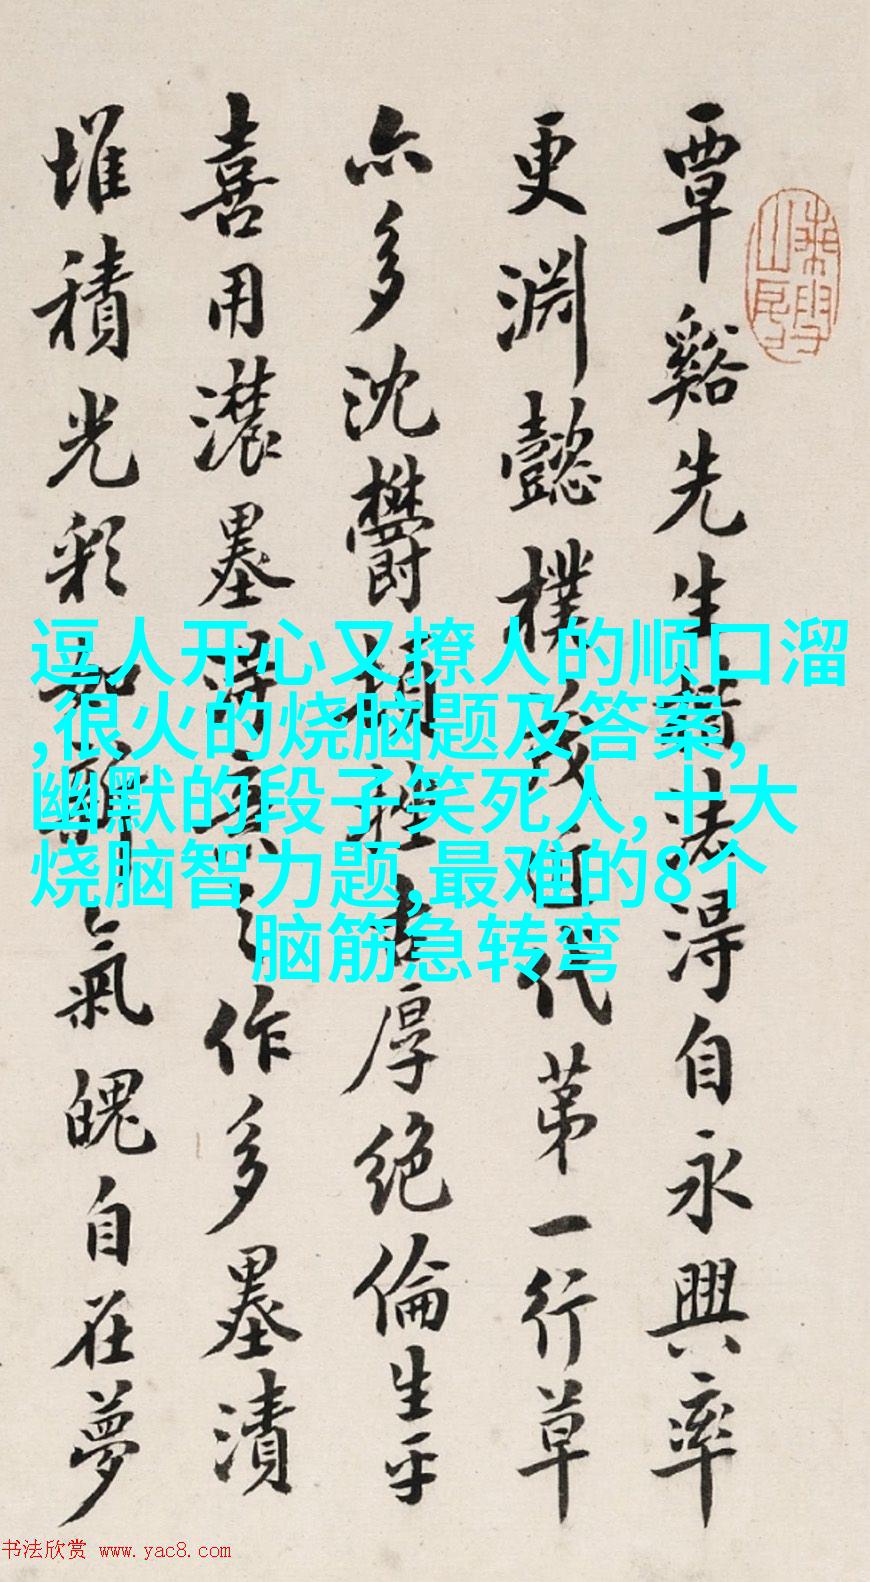 覃谿先生淂自永興率
更淵懿樸茂近代苐一行草
亦多沈欝頓挫古厚絕倫生平
喜用濃墨得意之作多墨漬
堆積光彩如新氣魄自在夢
逗人开心又撩人的顺口溜
,很火的烧脑题及答案,
幽默的段子笑死人,十大
烧脑智力题,最难的8个
脑筋急转弯
书法欣赏 www.yac8.com